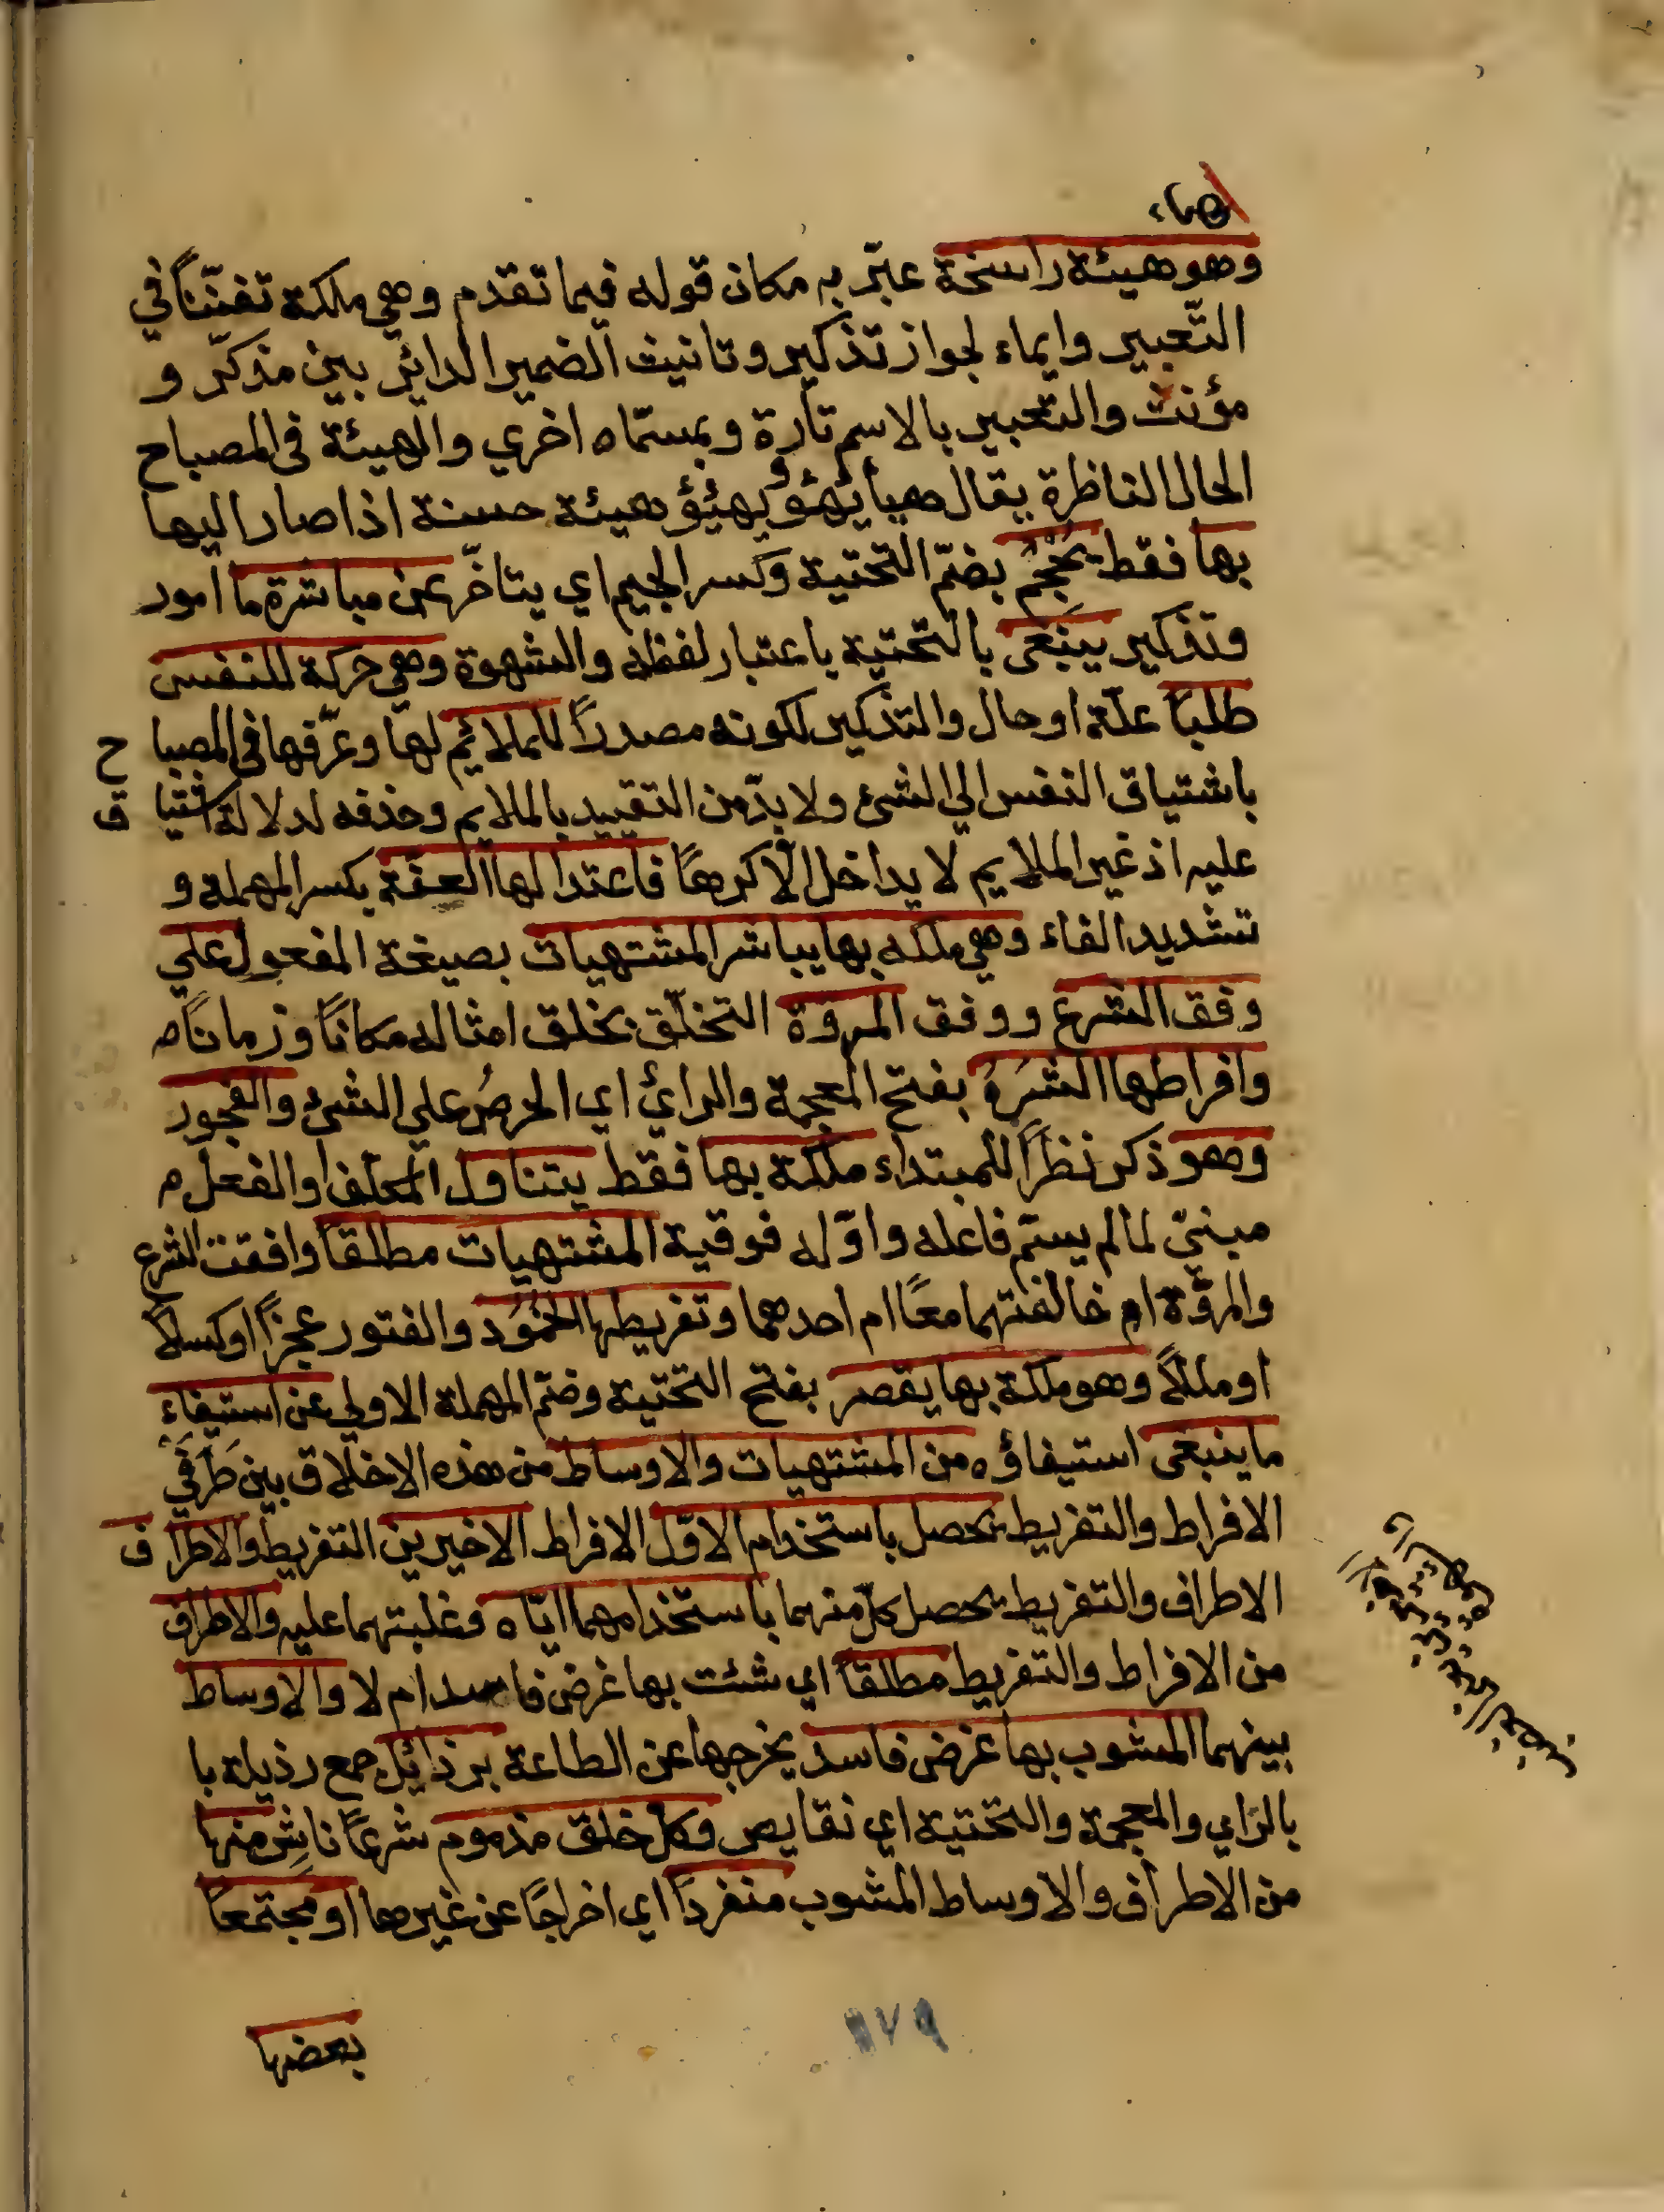 وهو هيئة راسخة عبّر به مكان قوله فيما تقدم وهي ملكة تفنّناً في
التّعبير وايماء لجواز تذكير وتانيث الضمير الدائر بين مذكّر و
مؤنث والتعبير بالاسم تارة وبمسمّاه اخري والهيئة في المصباح
الحال الظاهرة يقال هيأ يهؤ ويهيؤ هيئة حسنة اذا صار اليها
بها فقط يحجم بضمّ التحتية وكسر الجيم اي يتاخّر عن مباشرة ما امور
وتذكير ينبغي بالتحتية باعتبار لفظه والشهوة وهي حركة للنفس
طلباً علّة او حال والتذكير لكونه مصدراً للملائم لها وعرّفها في المصباح
باشتياق النفس الي الشئ ولا بدّ من التقييد بالملايم وحذفه لدلالة اشتياق
عليه اذ غير الملايم لا يداخل الّا كرهاً فاعتدالها العفّة بكسر المهملة و
تشديد الفاء وهي ملكه بها يباشر المشتهيات بصيغة المفعول علي
وفق الشرع ووفق المروّة التخلّق بخلق امثاله مكاناً وزماناً
وافراطها الشَرَهُ بفتح المعجمة والرائ اي الحرصُ علي الشئ والفجور
وهو ذكر نظراً للمبتداء ملكة بها فقط يتناول المكلف والفعل م
مبنيّ لما لم يسمّ فاعله واوّله فوقية المشتهيات مطلقاً وافقت الشرع
والمروّة ام خالفتهما معاً ام احدهما وتفريطها الخُمُود والفتور عجزاً او كسلاً
او مللاً وهو ملكة بها يقصر بفتح التحتية وضمّ المهملة الاولي عن استيفاء
ما ينبغي استيفاؤه من المشتهيات والاوساط من هذه الاخلاق بين طَرَفَي
الافراط والتفريط تحصل باستخدام الاوّل الافراط الاخيرين التفريط والاطراف
الاطراف والتفريط يحصل كلّ منهما باستخدامهما ايّاه وغلبتهما عليه والاطراف
من الافراط والتفريط مطلقاً اي شئت بها غرض فاسد ام لا والاوساط
بينهما المشوب بها غرض فاسد يخرجها عن الطاعة برذائل جمع رذيلة با
بالراي والمعجمة والتحتية اي نقايص وكلّ خلق مذموم شرعاً ناشٍ منها
من الاطراف والاوساط المشوب منفرداً اي اخراجًا عن غيرها او مجتمعاً
بعضها
١٧٩